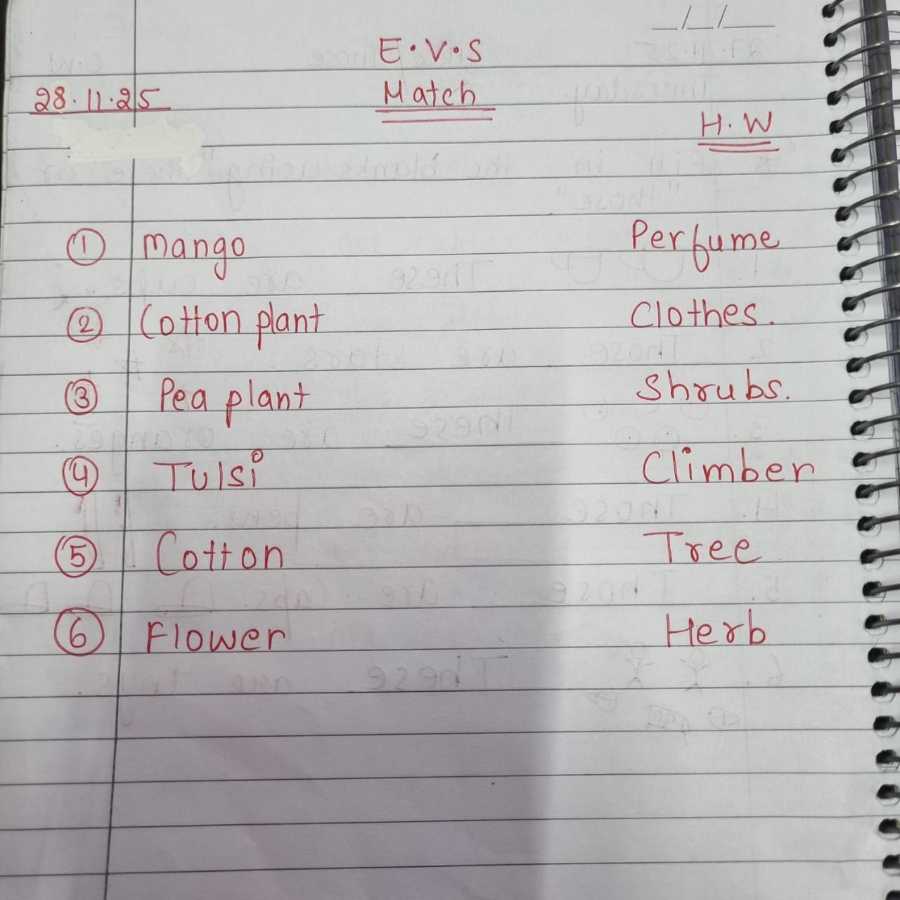 _/_/__
E.V.S
28.11.25 Match
H.W
① mango Perfume
② Cotton plant Clothes.
③ Pea plant Shrubs.
④ Tulsi Climber
⑤ Cotton Tree
⑥ Flower Herb